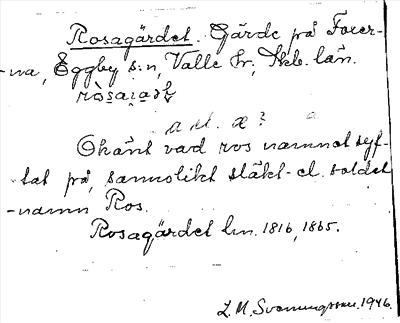 Rosagärdet. Gärde på Foxer-
-na, Eggby s:n, Valle hr, Skb. län.
a el. æ?
Okänt vad ros namnet syf-
tat på, sannolikt släkt- el. soldat
-namn Ros.
Rosagärdet lm. 1816, 1865.
L. M. Svenungsson. 1946.